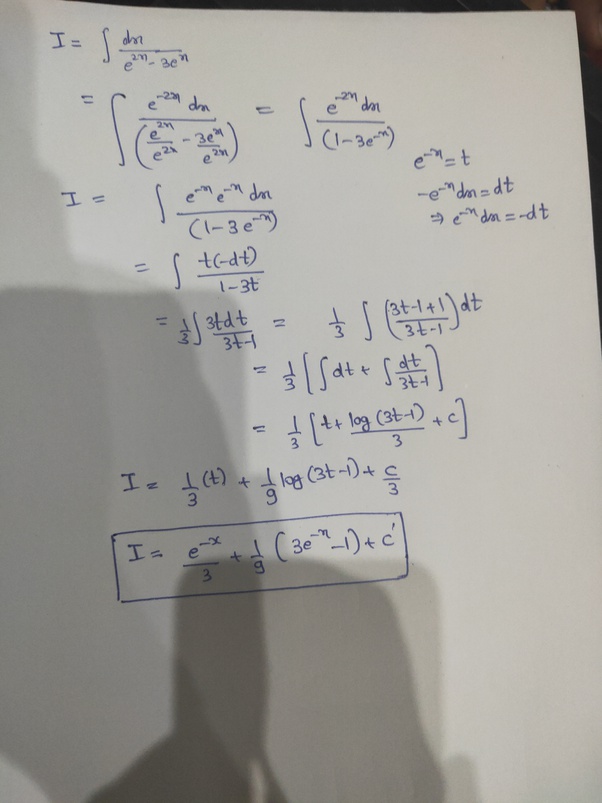 I = ∫ dx / (e^{2x} - 3e^x)
= ∫ e^{-2x} dx / (e^{2x}/e^{2x} - 3e^x/e^{2x}) = ∫ e^{-2x} dx / (1-3e^{-x})
e^{-x} = t
-e^{-x} dx = dt
⇒ e^{-x} dx = -dt
I = ∫ e^{-x} e^{-x} dx / (1-3e^{-x})
= ∫ t(-dt) / 1-3t
= 1/3 ∫ 3tdt / 3t-1 = 1/3 ∫ (3t-1+1 / 3t-1) dt
= 1/3 [∫ dt + ∫ dt / 3t-1]
= 1/3 [t + log(3t-1) / 3 + c]
I = 1/3 (t) + 1/9 log(3t-1) + c/3
I = e^{-x} / 3 + 1/9 (3e^{-x} - 1) + c'